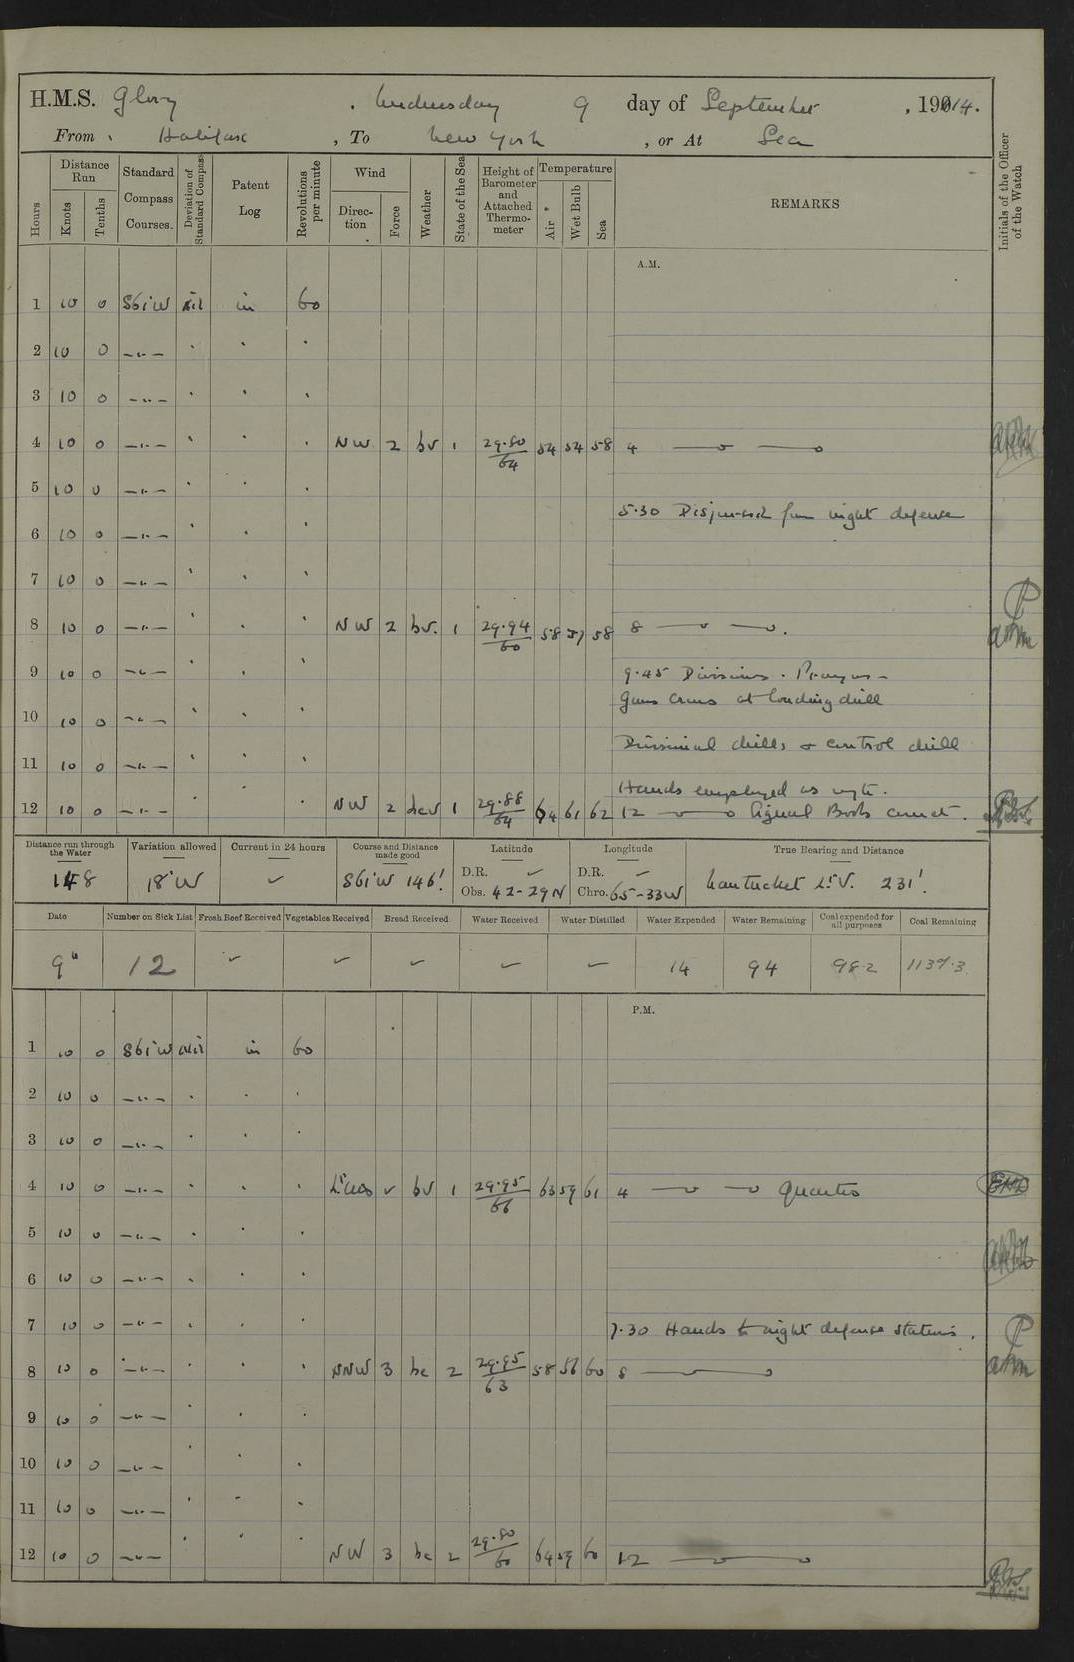 H.M.S. Glory . Wednesday 9 day of September , 1914.
From Halifax , To New York , or At Sea
Hours Distance Run Knots Tenths Standard Compass Courses. Deviation of Standard Compass Patent Log Revolutions per minute Wind Direction Force Weather State of the Sea Height of Barometer and Attached Thermometer Temperature Air Wet Bulb Sea REMARKS Initials of the Officer of the Watch
A.M.
1 10 0 S61°W Nil in 60
2 10 0 —"—
3 10 0 —"—
4 10 0 —"— NW 2 bv 1 29.80/64 54 54 58 4
5 10 0 —"—
5.30 Dispersed from night defence
6 10 0 —"—
7 10 0 —"—
8 10 0 —"— NW 2 bv. 1 29.94/60 58 57 58 8
9 10 0 —"— 9.45 Divisions. Prayers
Guns Crews at loading drill
10 10 0 —"—
Divisional drills & control drill
11 10 0 —"—
Hands employed as
12 10 0 —"— NW 2 1 29.88/64 64 61 62 12 Signal Books correct.
Distance run through the Water Variation allowed Current in 24 hours Course and Distance made good Latitude Longitude True Bearing and Distance
148 18°W S61°W 146' D.R. Obs. 42-29N D.R. Chro. 65-33W Nantucket Lt V. 231'.
Date Number on Sick List Fresh Beef Received Vegetables Received Bread Received Water Received Water Distilled Water Expended Water Remaining Coal expended for all purposes Coal Remaining
9th 12 14 94 98.2 1137.3
P.M.
1 10 0 S61°W Nil in 60
2 10 0 —"—
3 10 0 —"—
4 10 0 —"— Lt airs bv 1 29.95/66 63 59 61 4 Quarters
5 10 0 —"—
6 10 0 —"—
7 10 0 —"— 7.30 Hands to night defence stations.
8 10 0 —"— NNW 3 bc 2 29.95/63 58 56 60 8
9 10 0 —"—
10 10 0 —"—
11 10 0 —"—
12 10 0 —"— NW 3 bc 2 29.80/60 64 59 60 12